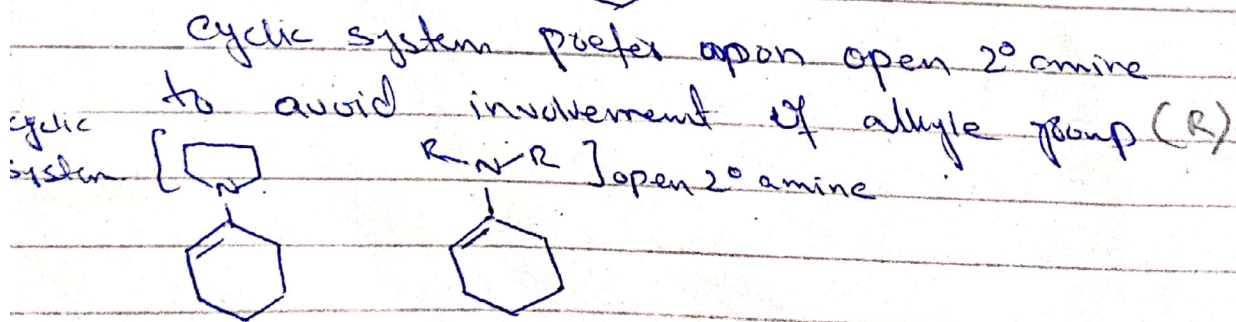 cyclic system prefer upon open 2° amine
to avoid involvement of alkyle group (R)
cyclic
system [ N
R N R ] open 2° amine